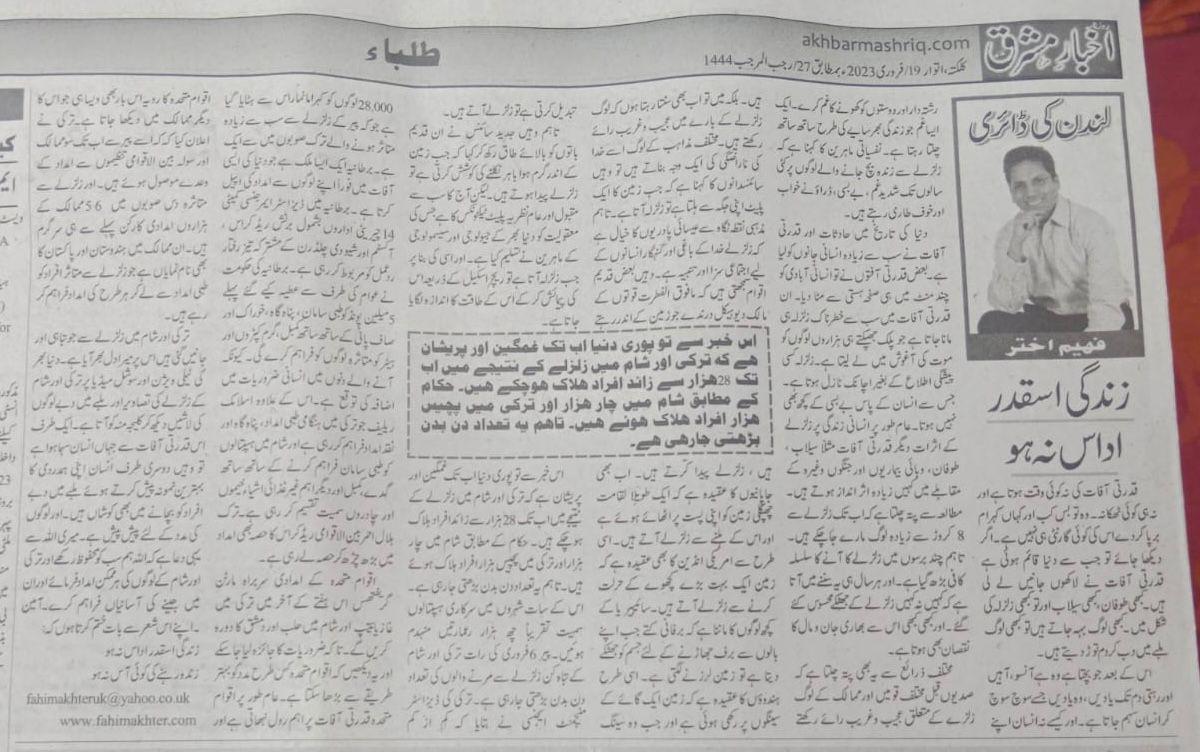 روزنامہ
اخبار مشرق
akhbarmashriq.com
کلکتہ، اتوار 19/فروری 2023ء بمطابق 27/رجب المرجب 1444
طلباء
لندن کی ڈائری
فہیم اختر
زندگی اسقدر
اداس نہ ہو
قدرتی آفات کی نہ کوئی وقت ہوتا ہے اور
نہ ہی کوئی ٹھکانہ۔ وہ تو بس کب اور کہاں کہرام
برپا کر دے اس کی کوئی گارنٹی ہی نہیں ہے۔ اگر
دیکھا جائے تو جب سے دنیا قائم ہوئی ہے
قدرتی آفات نے لاکھوں جانیں لے لی
ہیں۔ کبھی طوفان، کبھی سیلاب اور تو کبھی زلزلہ کی
شکل میں۔ کبھی لوگ بہہ جاتے ہیں تو کبھی لوگ
ملبے میں دب کر دم توڑ دیتے ہیں۔
اس کے بعد جو بچتا ہے وہ ہے آنسو، آہیں
اور رہتی دم تک یادیں، وہ یادیں جسے سوچ سوچ
کر انسان سہم جاتا ہے۔ اور کیسے نہ انسان اپنے
رشتہ دار اور دوستوں کو کھونے کا غم کرے۔ ایک
ایسا غم جو زندگی بھر سایے کی طرح ساتھ ساتھ
چلتا رہتا ہے۔ نفسیاتی ماہرین کا کہنا ہے کہ
زلزلے سے زندہ بچ جانے والے لوگوں پر کئی
سالوں تک شدید غم، بے بسی، ڈراؤنے خواب
اور خوف طاری رہتے ہیں۔
دنیا کی تاریخ میں حادثات اور قدرتی
آفات نے سب سے زیادہ انسانی جانوں کو لیا
ہے۔ بعض قدرتی آفتوں نے تو انسانی آبادی کو
چند منٹ میں ہی صفحہ ہستی سے مٹا دیا۔ ان
قدرتی آفات میں سب سے خطرناک زلزلہ ہی
مانا جاتا ہے جو پلک جھپکتے ہی ہزاروں لوگوں کو
موت کی آغوش میں لے لیتا ہے۔ زلزلہ کسی
پیشگی اطلاع کے بغیر اچانک نازل ہوتا ہے۔
جس سے انسان کے پاس بے بسی کے کچھ بھی
نہیں ہوتا۔ عام طور پر انسانی زندگی پر زلزلے
کے اثرات دیگر قدرتی آفات مثلاً سیلاب،
طوفان، وبائی بیماریوں اور جنگوں وغیرہ کے
مقابلے میں کہیں زیادہ اثر انداز ہوتے ہیں۔
مطالعہ سے پتہ چلتا ہے کہ اب تک زلزلے سے
8 کروڑ سے زیادہ لوگ مارے جا چکے ہیں۔
تاہم چند برسوں میں زلزلے کا آنے کا سلسلہ
کافی بڑھ گیا ہے۔ اور ہر سال ہی یہ سننے میں آتا
ہے کہ کہیں نہ کہیں زلزلے کے جھٹکے محسوس کئے
گئے۔ اور کبھی کبھی اس سے بھاری جان و مال کا
نقصان بھی ہوتا ہے۔
مختلف ذرائع سے یہ بھی پتہ چلتا ہے کہ
صدیوں قبل مختلف قومیں اور ممالک کے لوگ
زلزلے کے متعلق عجیب و غریب رائے رکھتے
ہیں۔ بلکہ میں تو اب بھی سنتا رہتا ہوں کہ لوگ
زلزلے کے بارے میں عجیب و غریب رائے
رکھتے ہیں۔ مختلف مذاہب کے لوگ اسے خدا
کی ناراضگی کی ایک وجہ بتاتے ہیں تو وہیں
سائنسدانوں کا کہنا ہے کہ جب زمین کا ایک
پلیٹ اپنی جگہ سے ہلتا ہے تو زلزلہ آتا ہے۔ تاہم
مذہبی نقطۂ نگاہ سے عیسائی پادریوں کا خیال ہے
کہ زلزلے خدا کے باغی اور گنہگار انسانوں کے
لیے اجتماعی سزا اور تنبیہہ ہے۔ وہیں بعض قدیم
اقوام سمجھتی ہیں کہ مافوق الفطرت قوتوں کے
مالک دیوہیکل درندے جو زمین کے اندر رہتے
ہیں، زلزلے پیدا کرتے ہیں۔ اب بھی
جاپانیوں کا عقیدہ ہے کہ ایک طویل القامت
چھپکلی زمین کو اپنی پشت پر اٹھائے ہوئے ہے
اور اس کے ہلنے سے زلزلے آتے ہیں۔ اسی
طرح سے امریکی انڈین کا بھی عقیدہ ہے کہ
زمین ایک بہت بڑے کچھوے کے حرکت
کرنے سے زلزلے آتے ہیں۔ سائبیریا کے
کچھ لوگوں کا ماننا ہے کہ برفانی کتے جب اپنے
بالوں سے برف جھاڑنے کے لئے جسم کو جھٹکے
دیتا ہے تو زمین لرزنے لگتی ہے۔ اسی طرح
ہندوؤں کا عقیدہ ہے کہ زمین ایک گائے کے
سینگوں پر رکھی ہوئی ہے اور جب وہ سینگ
تبدیل کرتی ہے تو زلزلے آتے ہیں۔
تاہم وہیں جدید سائنس نے ان قدیم
باتوں کو بالائے طاق رکھ کر کہا کہ جب زمین
کے اندر گرم ہوا باہر نکلنے کی کوشش کرتی ہے تو
زلزلے پیدا ہوتے ہیں۔ لیکن آج کا سب سے
مقبول اور عام نظریہ پلیٹ ٹیکٹونکس کا ہے جس کی
معقولیت کو دنیا بھر کے جیولوجی اور سیسمولوجی
کے ماہرین نے تسلیم کیا ہے۔ اور اسی کی بنا پر
جب زلزلہ آتا ہے تو ریچر اسکیل کے ذریعہ اس
کی پیمائش کر کے اُس کے طاقت کا اندازہ لگایا
جاتا ہے۔
اس خبر سے تو پوری دنیا اب تک غمگین اور پریشان
ہے کہ ترکی اور شام میں زلزلے کے نتیجے میں اب
تک 28ہزار سے زائد افراد ہلاک ہوچکے ہیں۔ حکام
کے مطابق شام میں چار ہزار اور ترکی میں پچیس
ہزار افراد ہلاک ہوئے ہیں۔ تاہم یہ تعداد دن بدن
بڑھتی جارہی ہے۔
اس خبر سے تو پوری دنیا اب تک غمگین اور
پریشان ہے کہ ترکی اور شام میں زلزلے کے
نتیجے میں اب تک 28 ہزار سے زائد افراد ہلاک
ہو چکے ہیں۔ حکام کے مطابق شام میں چار
ہزار اور ترکی میں پچیس ہزار افراد ہلاک ہوئے
ہیں۔ تاہم یہ تعداد دن بدن بڑھتی جا رہی ہے۔
اس کے سات شہروں میں سرکاری ہسپتالوں
سمیت تقریباً چھ ہزار عمارتیں منہدم
ہوئیں۔ پیر 6 فروری کی رات ترکی اور شام
کے تباہ کن زلزلے سے مرنے والوں کی تعداد
دن بدن بڑھتی جا رہی ہے۔ ترکی کی ڈیزاسٹر
مینجمنٹ ایجنسی نے بتایا کہ کم از کم
28,000 لوگوں کو کہرامانماراس سے ہٹایا گیا
ہے جو کہ پیر کے زلزلے سے سب سے زیادہ
متاثر ہونے والے ترک صوبوں میں سے ایک
ہے۔ برطانیہ ایک ایسا ملک ہے جو دنیا کی ایسی
آفات میں فوراً اپنے لوگوں سے امداد کی اپیل
کرتا ہے۔ برطانیہ میں ڈیزاسٹر ایمرجنسی کمیٹی
14 چیریٹی اداروں بشمول برٹش ریڈ کراس،
آکسفم اور سیو دی چلڈرن کے مشترکہ تیز رفتار
ردعمل کو مربوط کر رہی ہے۔ برطانیہ کی حکومت
نے عوام کی طرف سے عطیہ کیے گئے پہلے
5 ملین پونڈ کو طبی سامان، پناہ گاہ، خوراک اور
صاف پانی کے ساتھ ساتھ کمبل، گرم کپڑوں اور
ہیٹر کو متاثر لوگوں کو فراہم کرے گی۔ کیونکہ
آنے والے دنوں میں انسانی ضروریات میں
اضافہ کی توقع ہے۔ اس کے علاوہ اسلامک
ریلیف جو ترکی میں ہنگامی طبی امداد، پناہ گاہ اور
نقد امداد فراہم کر رہی ہے اور شام میں ہسپتالوں
کو طبی سامان فراہم کرنے کے ساتھ ساتھ
گدے، کمبل اور دیگر اہم غیر غذائی اشیاء، خیموں
اور چادروں سمیت تقسیم کر رہی ہے۔ ترک
ہلال احمر بین الاقوامی ریڈ کراس کا حصہ بھی امداد
میں بڑھ چڑھ کر حصہ لے رہی ہے۔
اقوام متحدہ کے امدادی سربراہ مارٹن
گریفتھس اس ہفتے کے آخر میں ترکی میں
غازیانتیپ اور شام میں حلب اور دمشق کا دورہ
کریں گے۔ تاکہ ضروریات کا جائزہ لیا جا سکے
اور یہ دیکھیں کہ اقوام متحدہ کس طرح مدد کو بہتر
طریقے سے بڑھا سکتا ہے۔ عام طور پر اقوام
متحدہ قدرتی آفات پر اہم رول نبھاتی ہے اور
اقوام متحدہ کا رویہ اس بار بھی ویسا ہی جو اس کا
دیگر ممالک میں دیکھا جاتا ہے۔ ترکی نے
اعلان کیا کہ اسے پیر سے اب تک سو ممالک
اور سولہ بین الاقوامی تنظیموں سے امداد کے
وعدے موصول ہوئے ہیں۔ اور زلزلے سے
متاثرہ دس صوبوں میں 56 ممالک کے
ہزاروں امدادی کارکن پہلے سے ہی سرگرم
ہیں۔ ان ممالک میں ہندوستان اور پاکستان کا
بھی نام نمایاں ہے جو زلزلے سے متاثر افراد کو
طبی امداد سے لے کر ہر طرح کی امداد فراہم کر
رہے ہیں۔
ترکی اور شام میں زلزلے سے جو تباہی اور
جانیں گئی ہیں اس پر میرا دل بھر آیا ہے۔ دنیا بھر
کی ٹیلی ویژن اور سوشل میڈیا پر ترکی اور شام
کے زلزلے کی تصاویر اور ملبے میں دبے لوگوں
کی لاشیں دیکھ کر کلیجہ منہ کو آتا ہے۔ ایک طرف
اس قدرتی آفات سے جہاں انسان سہما ہوا ہے
تو وہیں دوسری طرف انسان اپنی ہمدردی کا
بہترین نمونہ پیش کرتے ہوئے ملبے میں دبے
افراد کو بچانے میں بھی کوشاں ہیں۔ اور لوگوں
کی مدد کے لئے پیش پیش ہے۔ میری اللہ سے
یہی دعا ہے کہ اللہ ہم سب کو محفوظ رکھے اور ترکی
اور شام کے لوگوں کی ہر ممکن امداد فرمائے اور ان
میں جینے کی آسانیاں فراہم کرے۔ آمین
۔ اپنے اس شعر سے بات ختم کرتا ہوں کہ:
زندگی اسقدر اداس نہ ہو
زندہ رہنے کی کوئی آس نہ ہو
fahimakhteruk@yahoo.co.uk
www.fahimakhter.com